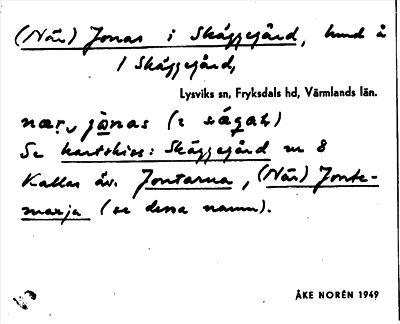 (När) Jonas i Skäggegård, hmd å
1 Skäggegård,
Lysviks sn, Fryksdals hd, Värmlands län.
Se kartskiss: Skäggegård nr 8
Kallas äv. Jontarna, (När) Jonte-
marja (se dessa namn).
ÅKE NORÉN 1949